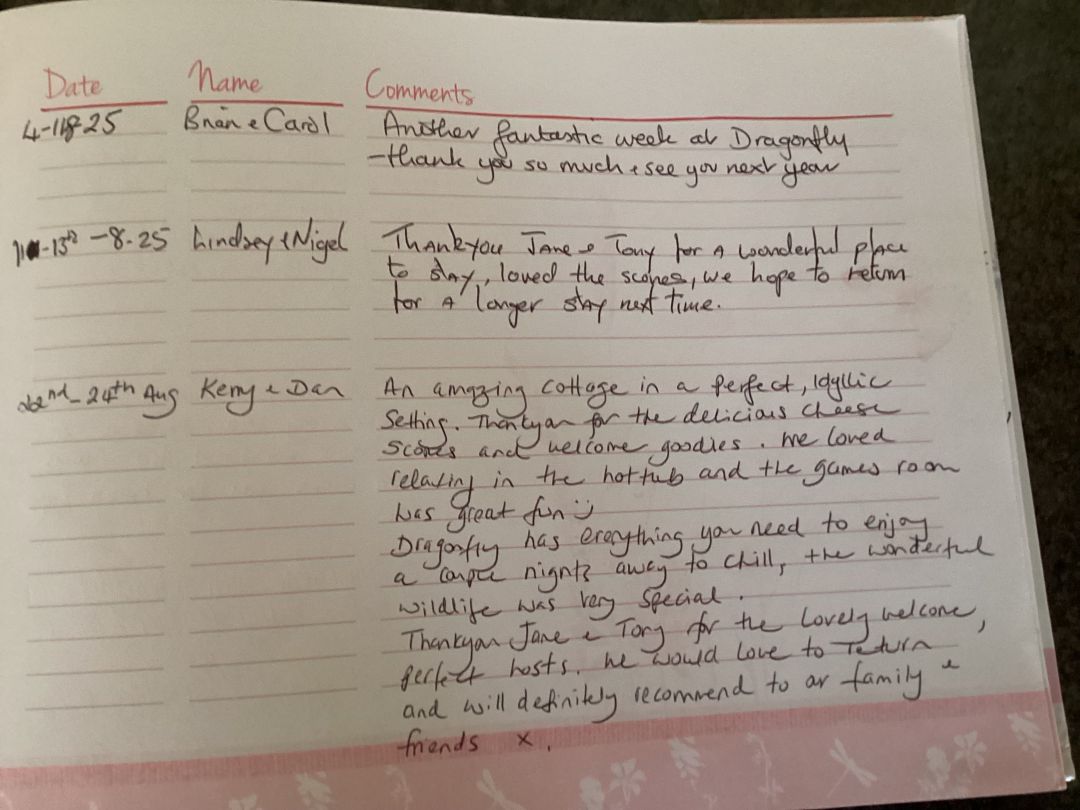 Date Name Comments
4-11825 Brian & Carol Another fantastic week at Dragonfly
-thank you so much & see you next year
11-13th -8.25 Lindsey & Nigel Thankyou Jane & Tony for A wonderful place
to stay, loved the scones, we hope to return
for A longer stay next time.
22nd - 24th Aug Kerry & Dan An amazing cottage in a perfect, Idyllic
Setting. Thankyou for the delicious cheese
scones and welcome goodies. We loved
relaxing in the hottub and the games room
was great fun :)
Dragonfly has everything you need to enjoy
a couple nights away to chill, the wonderful
wildlife was very special.
Thankyou Jane & Tony for the lovely welcome,
perfect hosts. We would love to return
and will definitely recommend to our family &
friends x.